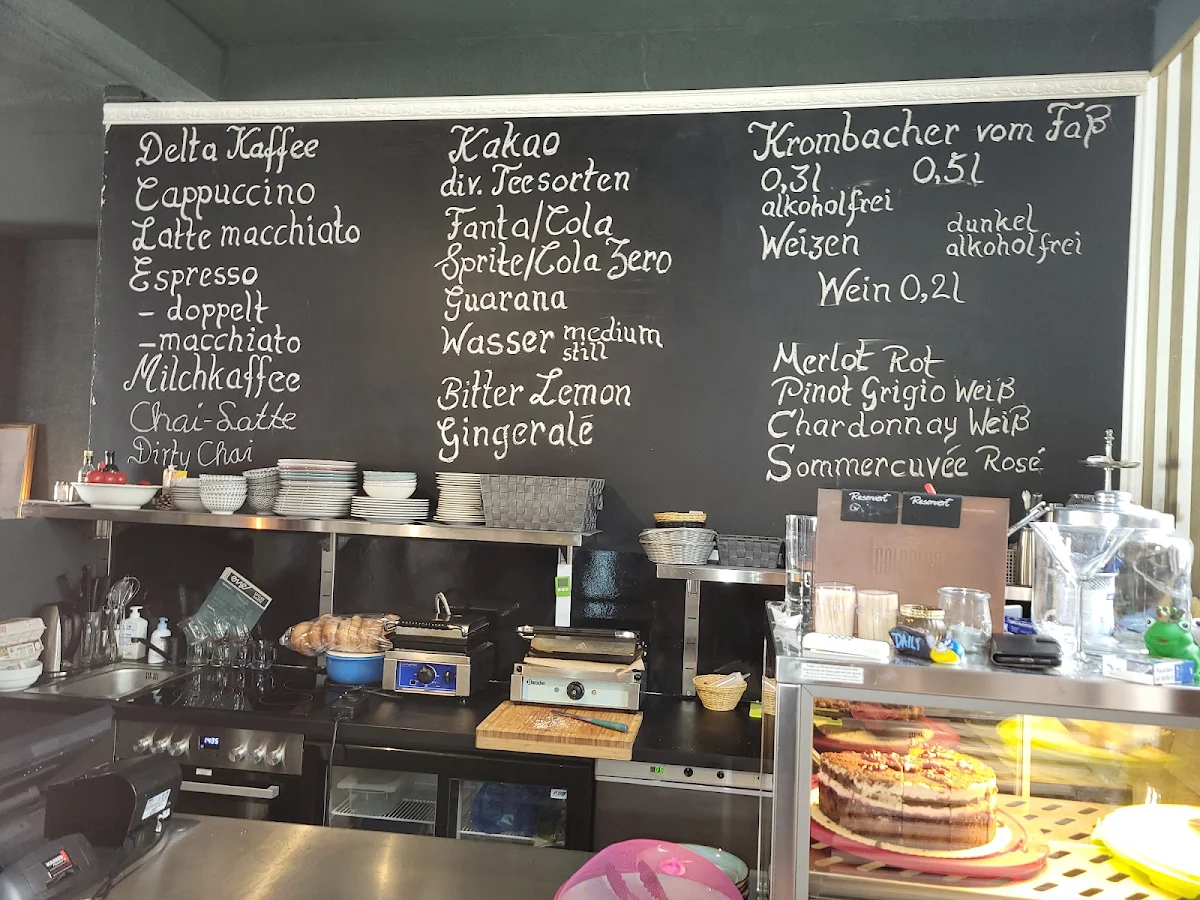 Delta Kaffee
Cappuccino
Latte macchiato
Espresso
- doppelt
- macchiato
Milchkaffee
Chai-Latte
Dirty Chai
Kakao
div. Teesorten
Fanta/Cola
Sprite/Cola Zero
Guarana
Wasser medium
still
Bitter Lemon
Gingeralé
Krombacher vom Faß
0,3l 0,5l
alkoholfrei
Weizen dunkel
alkoholfrei
Wein 0,2l
Merlot Rot
Pinot Grigio Weiß
Chardonnay Weiß
Sommercuvée Rosé
Reserviert
Reserviert
DAILY
1435